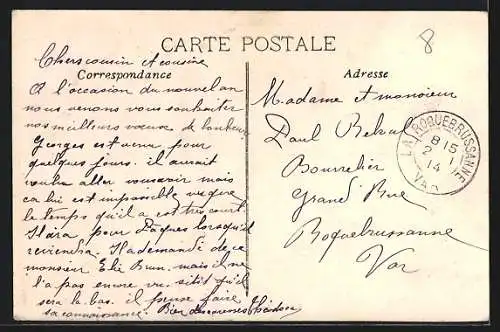 8
CARTE POSTALE
Correspondance
Adresse
Chers cousin et cousine
A l'occasion du nouvel an
nous venons vous souhaiter
nos meilleurs vœux de bonheur
Georges est venu pour
quelques jours. il aurait
voulu aller vous voir mais
ça lui est impossible vu que
le temps qu'il a est très court.
Il ira pour Pâques lorsqu'il
reviendra. Il a demandé de ce
monsieur Elie Brun, mais il ne
l'a pas encore vu sitôt qu'il
sera la bas. il pense faire
sa connaissance. Bien des
Madame et monsieur
Paul
Bourrelier
Grand Rue
Roquebrussanne
Var
LA ROQUEBRUSSANNE
8 15
2 1
14
VAR